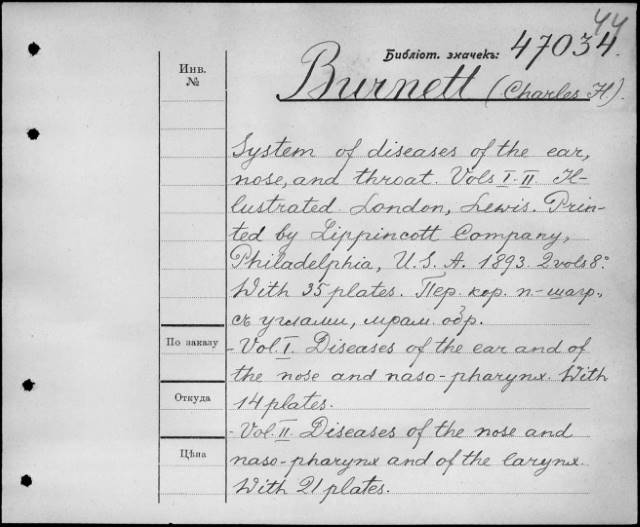 44
Библіот. значекъ: 47034.
Инв.
№
Burnett (Charles H).
System of diseases of the ear,
nose, and throat. Vols I-II Il-
lustrated. London, Lewis. Prin-
ted by Lippincott Company,
Philadelphia, U. S. A. 1893. 2 vols 8º.
With 35 plates. Пер. кор. п-шагр.,
съ углами, мрам. обр.
По заказу
- Vol. I. Diseases of the ear and of
the nose and naso-pharynx. With
Откуда
14 plates.
- Vol. II. Diseases of the nose and
Цѣна
naso-pharynx and of the larynx.
With 21 plates.